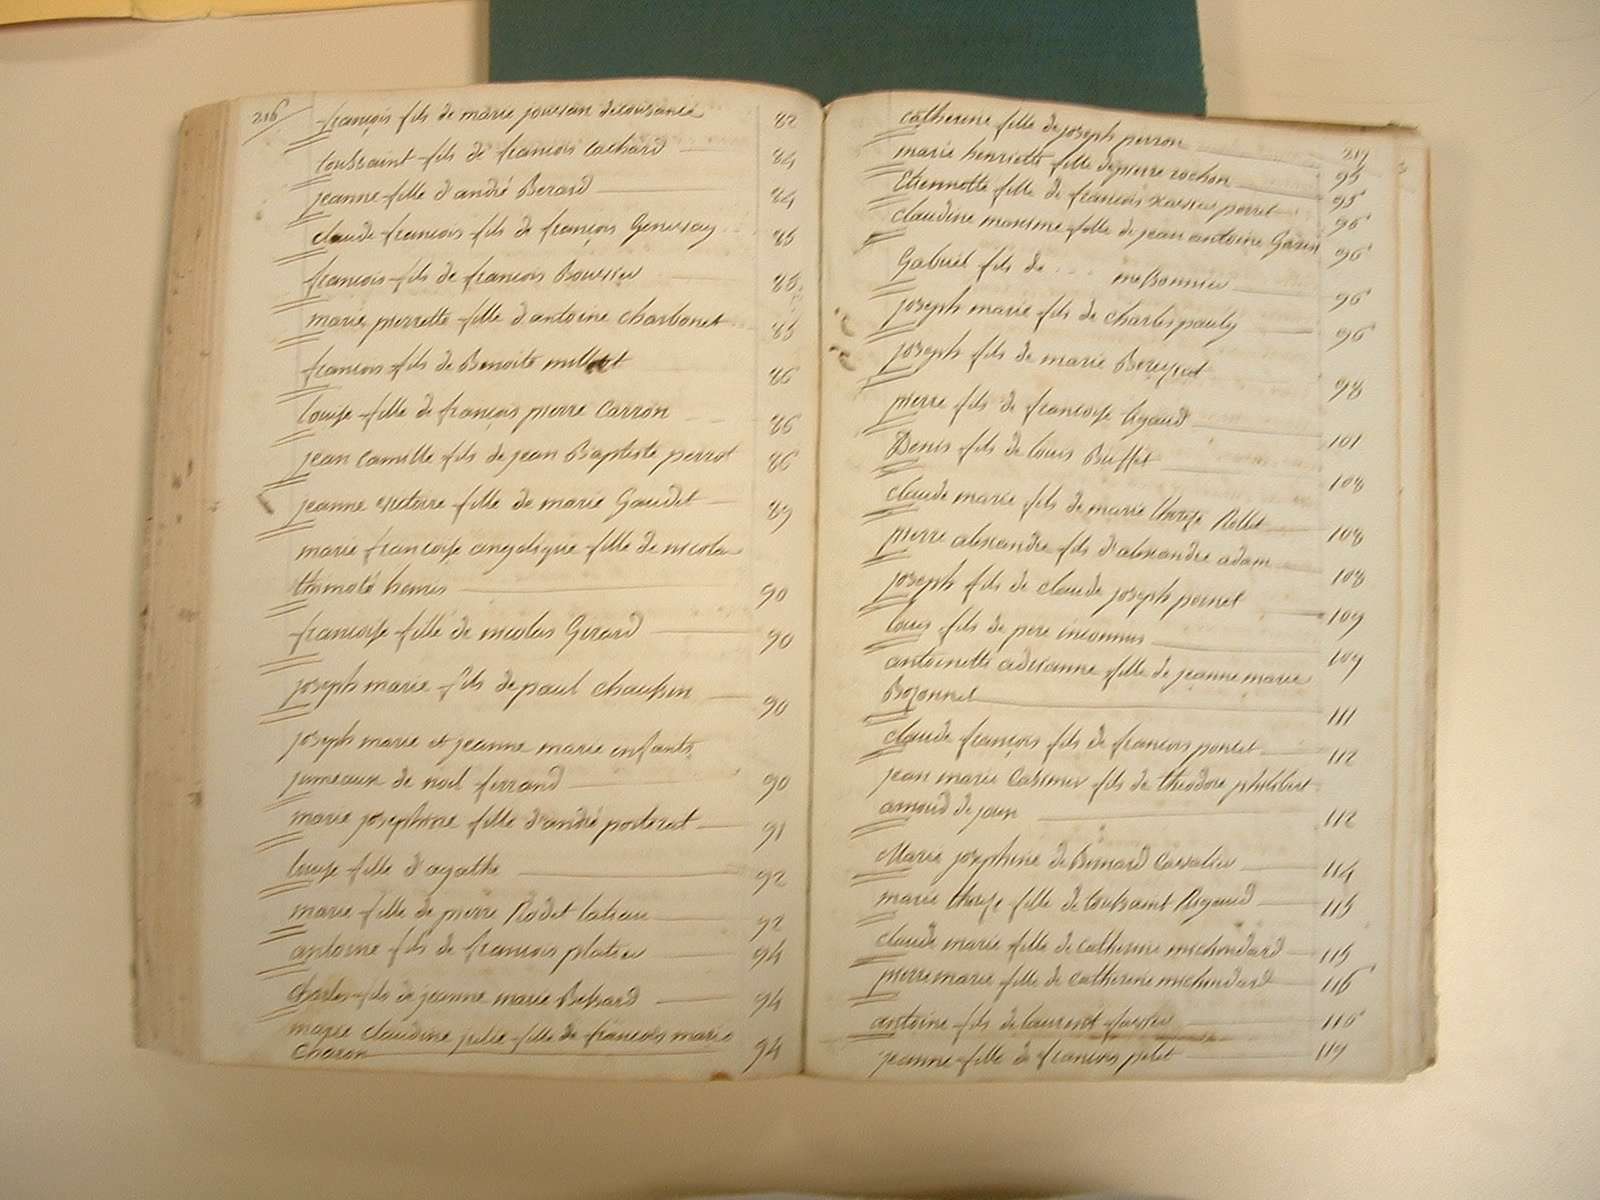 216
françois fils de marie 82
toussaint fils de françois cachard 84
jeanne fille d'andré Berard 84
claude françois fils de françois Genevray 85
françois fils de françois Bouvier 85
marie pierrette fille d'antoine charbonet 85
françois fils de Benoite millet 86
louise fille de françois pierre Carron 86
jean camille fils de jean Baptiste perrot 86
jeanne victoire fille de marie Gaudet 89
marie françoise angelique fille de nicolas
thimoté henris 90
françoise fille de nicolas Gerard 90
joseph marie fils de paul chausson 90
joseph marie et jeanne marie enfants
jumeaux de noel ferrand 90
marie josephine fille d'andré posterat 91
louise fille d'agathe 92
marie fille de pierre Rodet 92
antoine fils de françois platieu 94
charles fils de jeanne marie Bessard 94
marie claudine julie fille de françois marie
Charon 94
217
catherine fille de joseph perron 95
marie henriette fille de pierre rochon 95
Etiennette fille de françois xavier porret 96
claudine maxime fille de jean antoine Garin 96
Gabriel fils de ... messonnier 96
joseph marie fils de charles pauly 96
joseph fils de marie 98
pierre fils de françoise rigaud 101
Denis fils de louis Buffet 108
claude marie fils de marie therese Rollet 108
pierre alexandre fils d'alexandre adam 108
joseph fils de claude joseph pernet 109
louis fils de pere inconnus 109
antoinette adrianne fille de jeanne marie
Bozonnet 111
claude françois fils de françois poncet 112
jean marie Casimir fils de theodore philibert
arnoud de joux 112
Marie josephine de Bernard Cavalier 114
marie therese fille de toussaint Rigaud 115
claude marie fille de catherine michoudard 115
pierre marie fille de catherine michoudard 116
antoine fils de laurent favier 116
jeanne fille de françois pelet 119